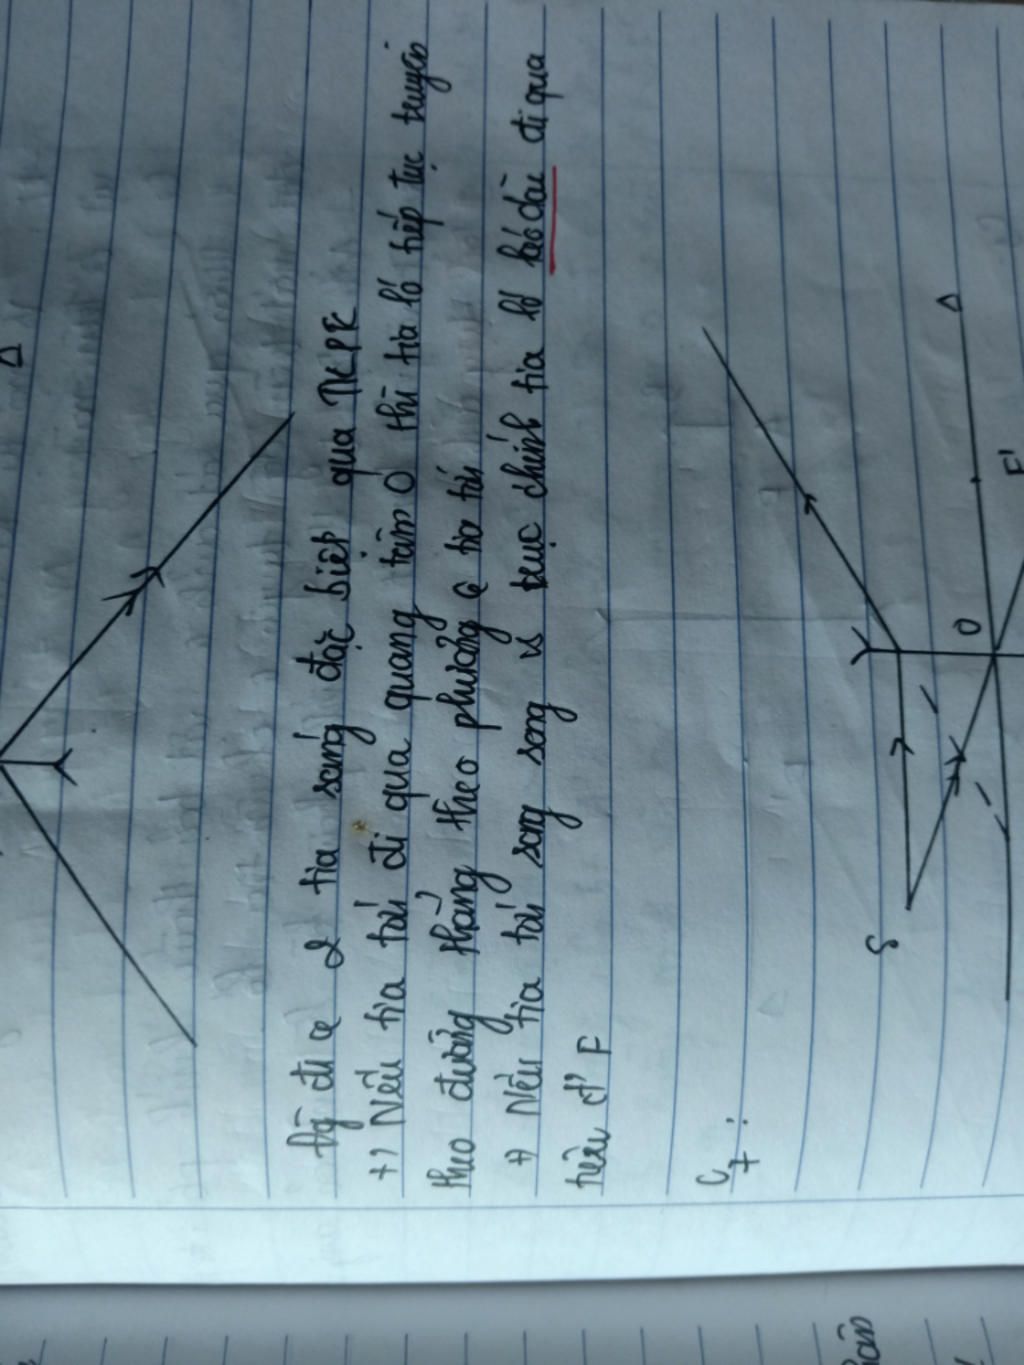 Δ
Đg đi of 2 tia sáng đặc biệt qua TKPK
+) Nếu tia tới đi qua quang tâm O thì tia ló tiếp tục truyền
theo đường thẳng theo phương of tia tới
+) Nếu tia tới song song vs trục chính tia ló kéo dài đi qua
tiêu đ' F
C7:
S
O
Δ
F'